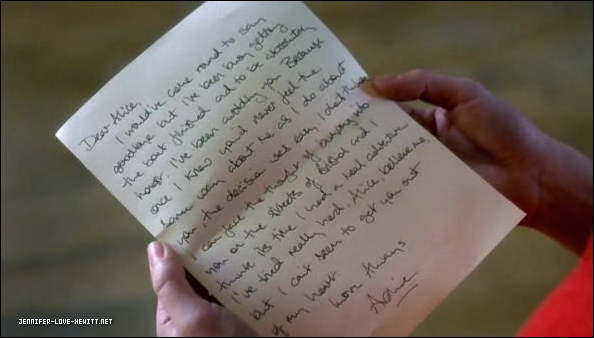 Dear Alice,
I would've come round to say
goodbye but I've been busy getting
the boat finished and to be absolutely
honest I've been avoiding you. Because
once I knew you'd never feel the
same way about me as I do about
you the decision was easy. I don't think I
can face the thought of bumping into
him on the streets of Bristol and I
think it's time I had a real adventure.
I've tried really hard, Alice believe me,
but I can't seem to get you out
of my heart.
Love Always
Archie
JENNIFER-LOVE-HEWITT.NET